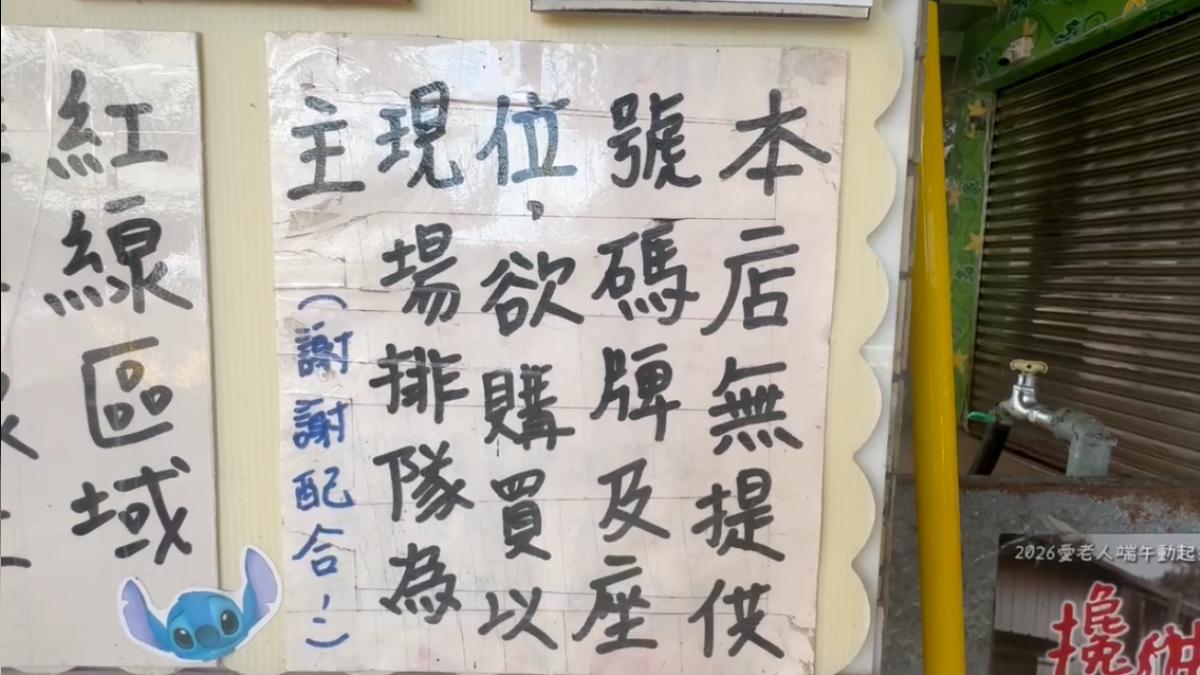 本店無提供
號碼牌及座
位,欲購買以
現場排隊為
主
(謝謝配合!)
紅線區域
2026愛老人端午動起
攙